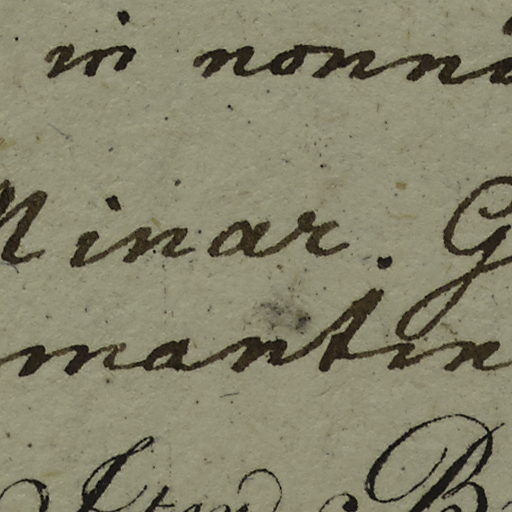 in nonni
Minar. G
mantin